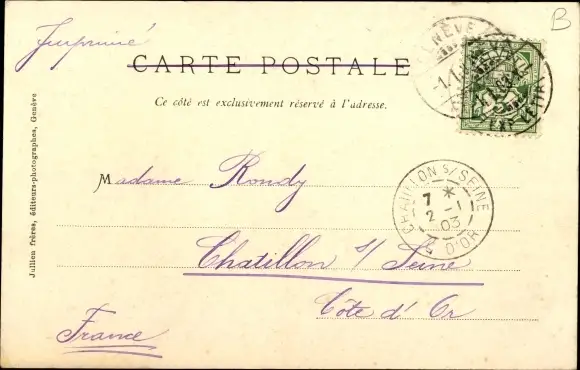 B
Imprimé
CARTE POSTALE
Ce côté est exclusivement réservé à l'adresse.
Madame Rondy
Chatillon s/ Seine
Côte d'Or
France
Jullien frères, éditeurs-photographes, Genève
GENÈVE
CHATILLON S/ SEINE
7 *
2 - 1
03
D'OR